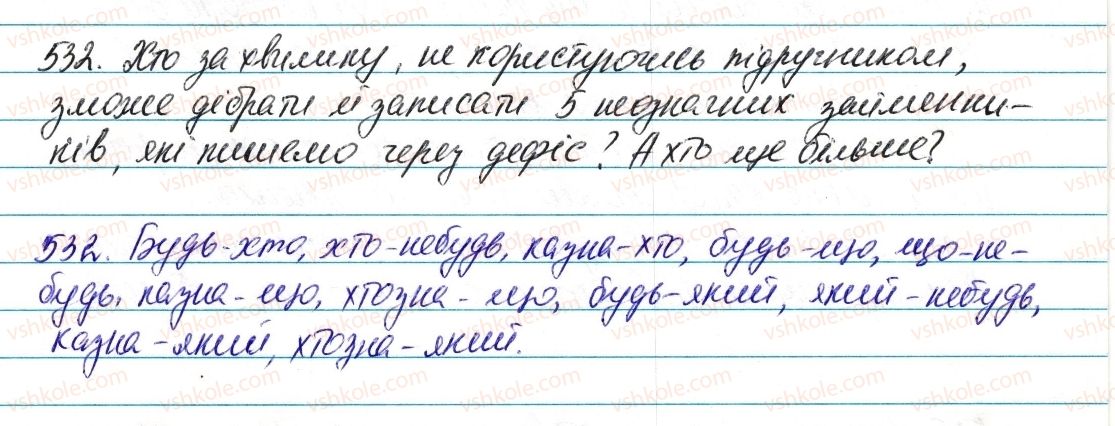 532. Хто за хвилину, не користуючись підручником,
зможе дібрати й записати 5 неозначних займенни-
ків, які пишемо через дефіс? А хто ще більше?
532. Будь-хто, хто-небудь, казна-хто, будь-що, що-не-
будь, казна-що, хтозна-що, будь-який, який-небудь,
казна-який, хтозна-який.